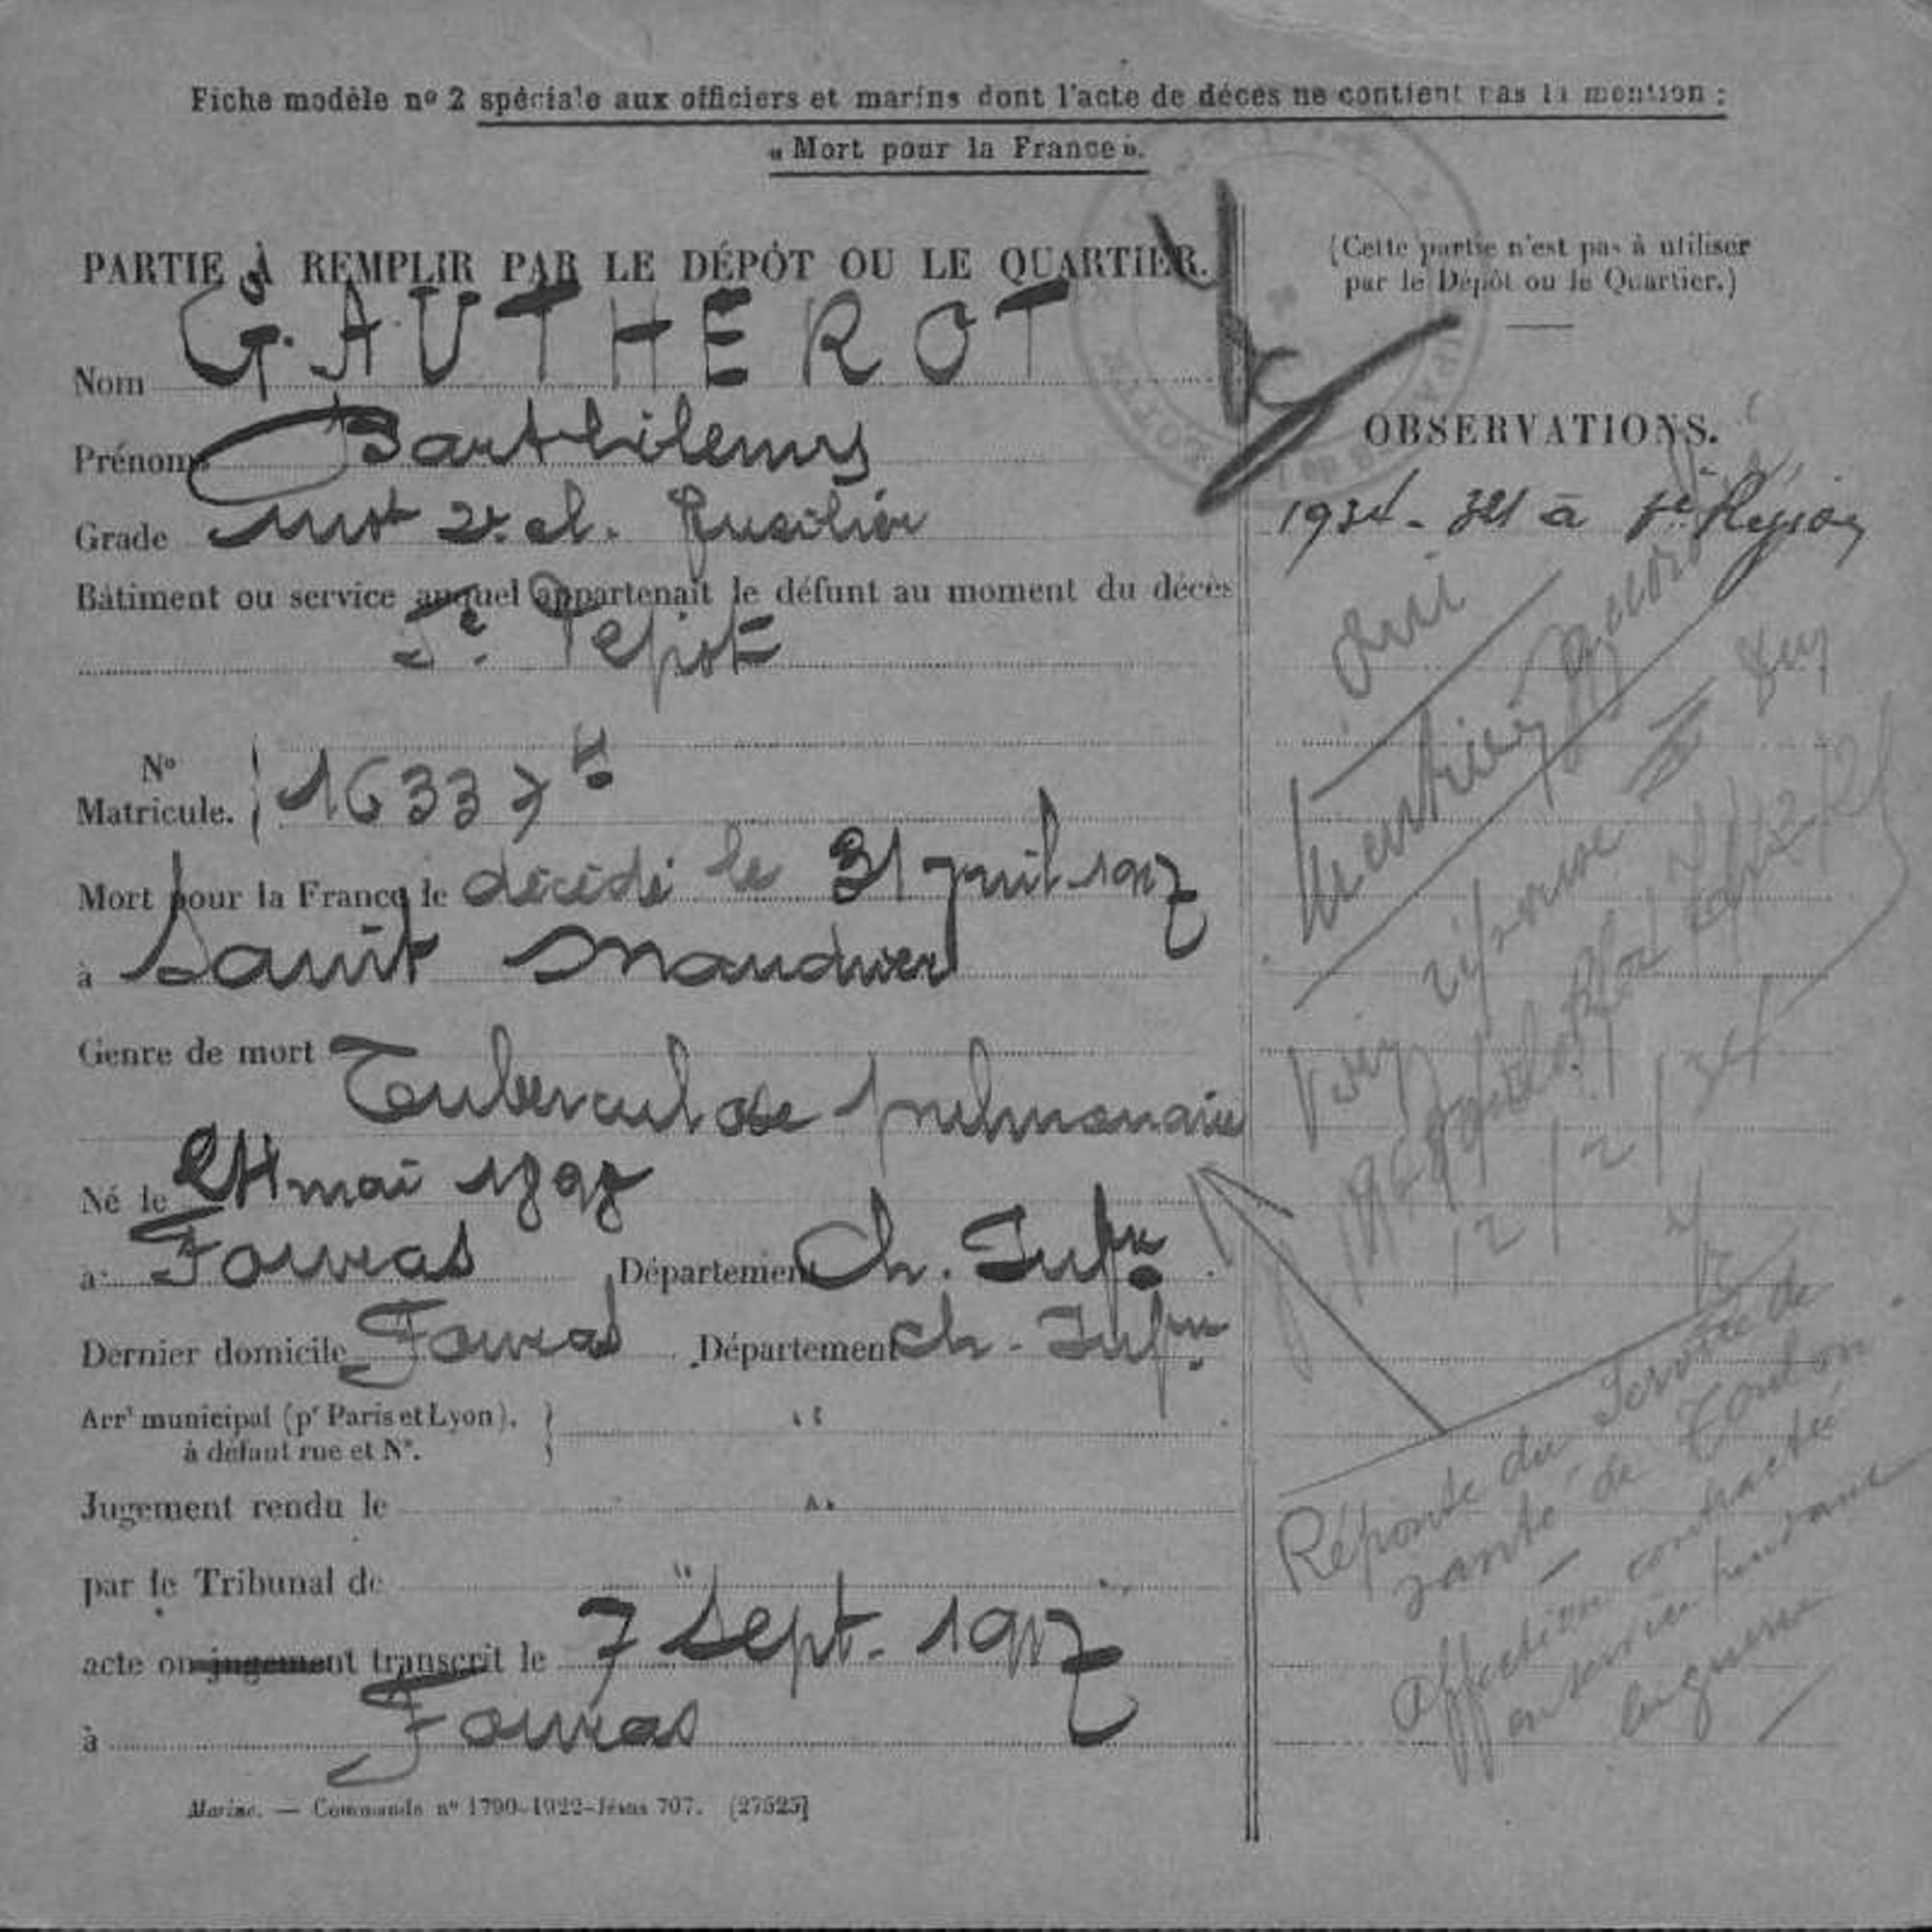 Fiche modèle nº 2 spéciale aux officiers et marins dont l'acte de décès ne contient pas la mention :
« Mort pour la France ».
PARTIE À REMPLIR PAR LE DÉPÔT OU LE QUARTIER.
Nom GAUTHEROT
Prénoms Barthilemy
Grade Mot 2e cl. fusilier
Bâtiment ou service auquel appartenait le défunt au moment du décès
5e Dépôt
Nº
Matricule. 16337
Mort pour la France le décédé le 31 juil 1917
à Saint Mandrier
Genre de mort Tuberculose pulmonaire
Né le mai 1897
à Fouras Département Ch. Infre
Dernier domicile Fouras Département Ch. Infre
Arrt municipal (pr Paris et Lyon),
à défaut rue et Nº.
Jugement rendu le
par le Tribunal de "
acte ou jugement transcrit le 7 Sept. 1917
à Fouras
Marine. — Commande nº 1790-1922-Jésus 707. [27525]
(Cette partie n'est pas à utiliser
par le Dépôt ou le Quartier.)
OBSERVATIONS.
à Région
oui
Voir réponse
12/2/34
Réponse du Service de
santé de Toulon
Affection contractée
en service pendant
la guerre